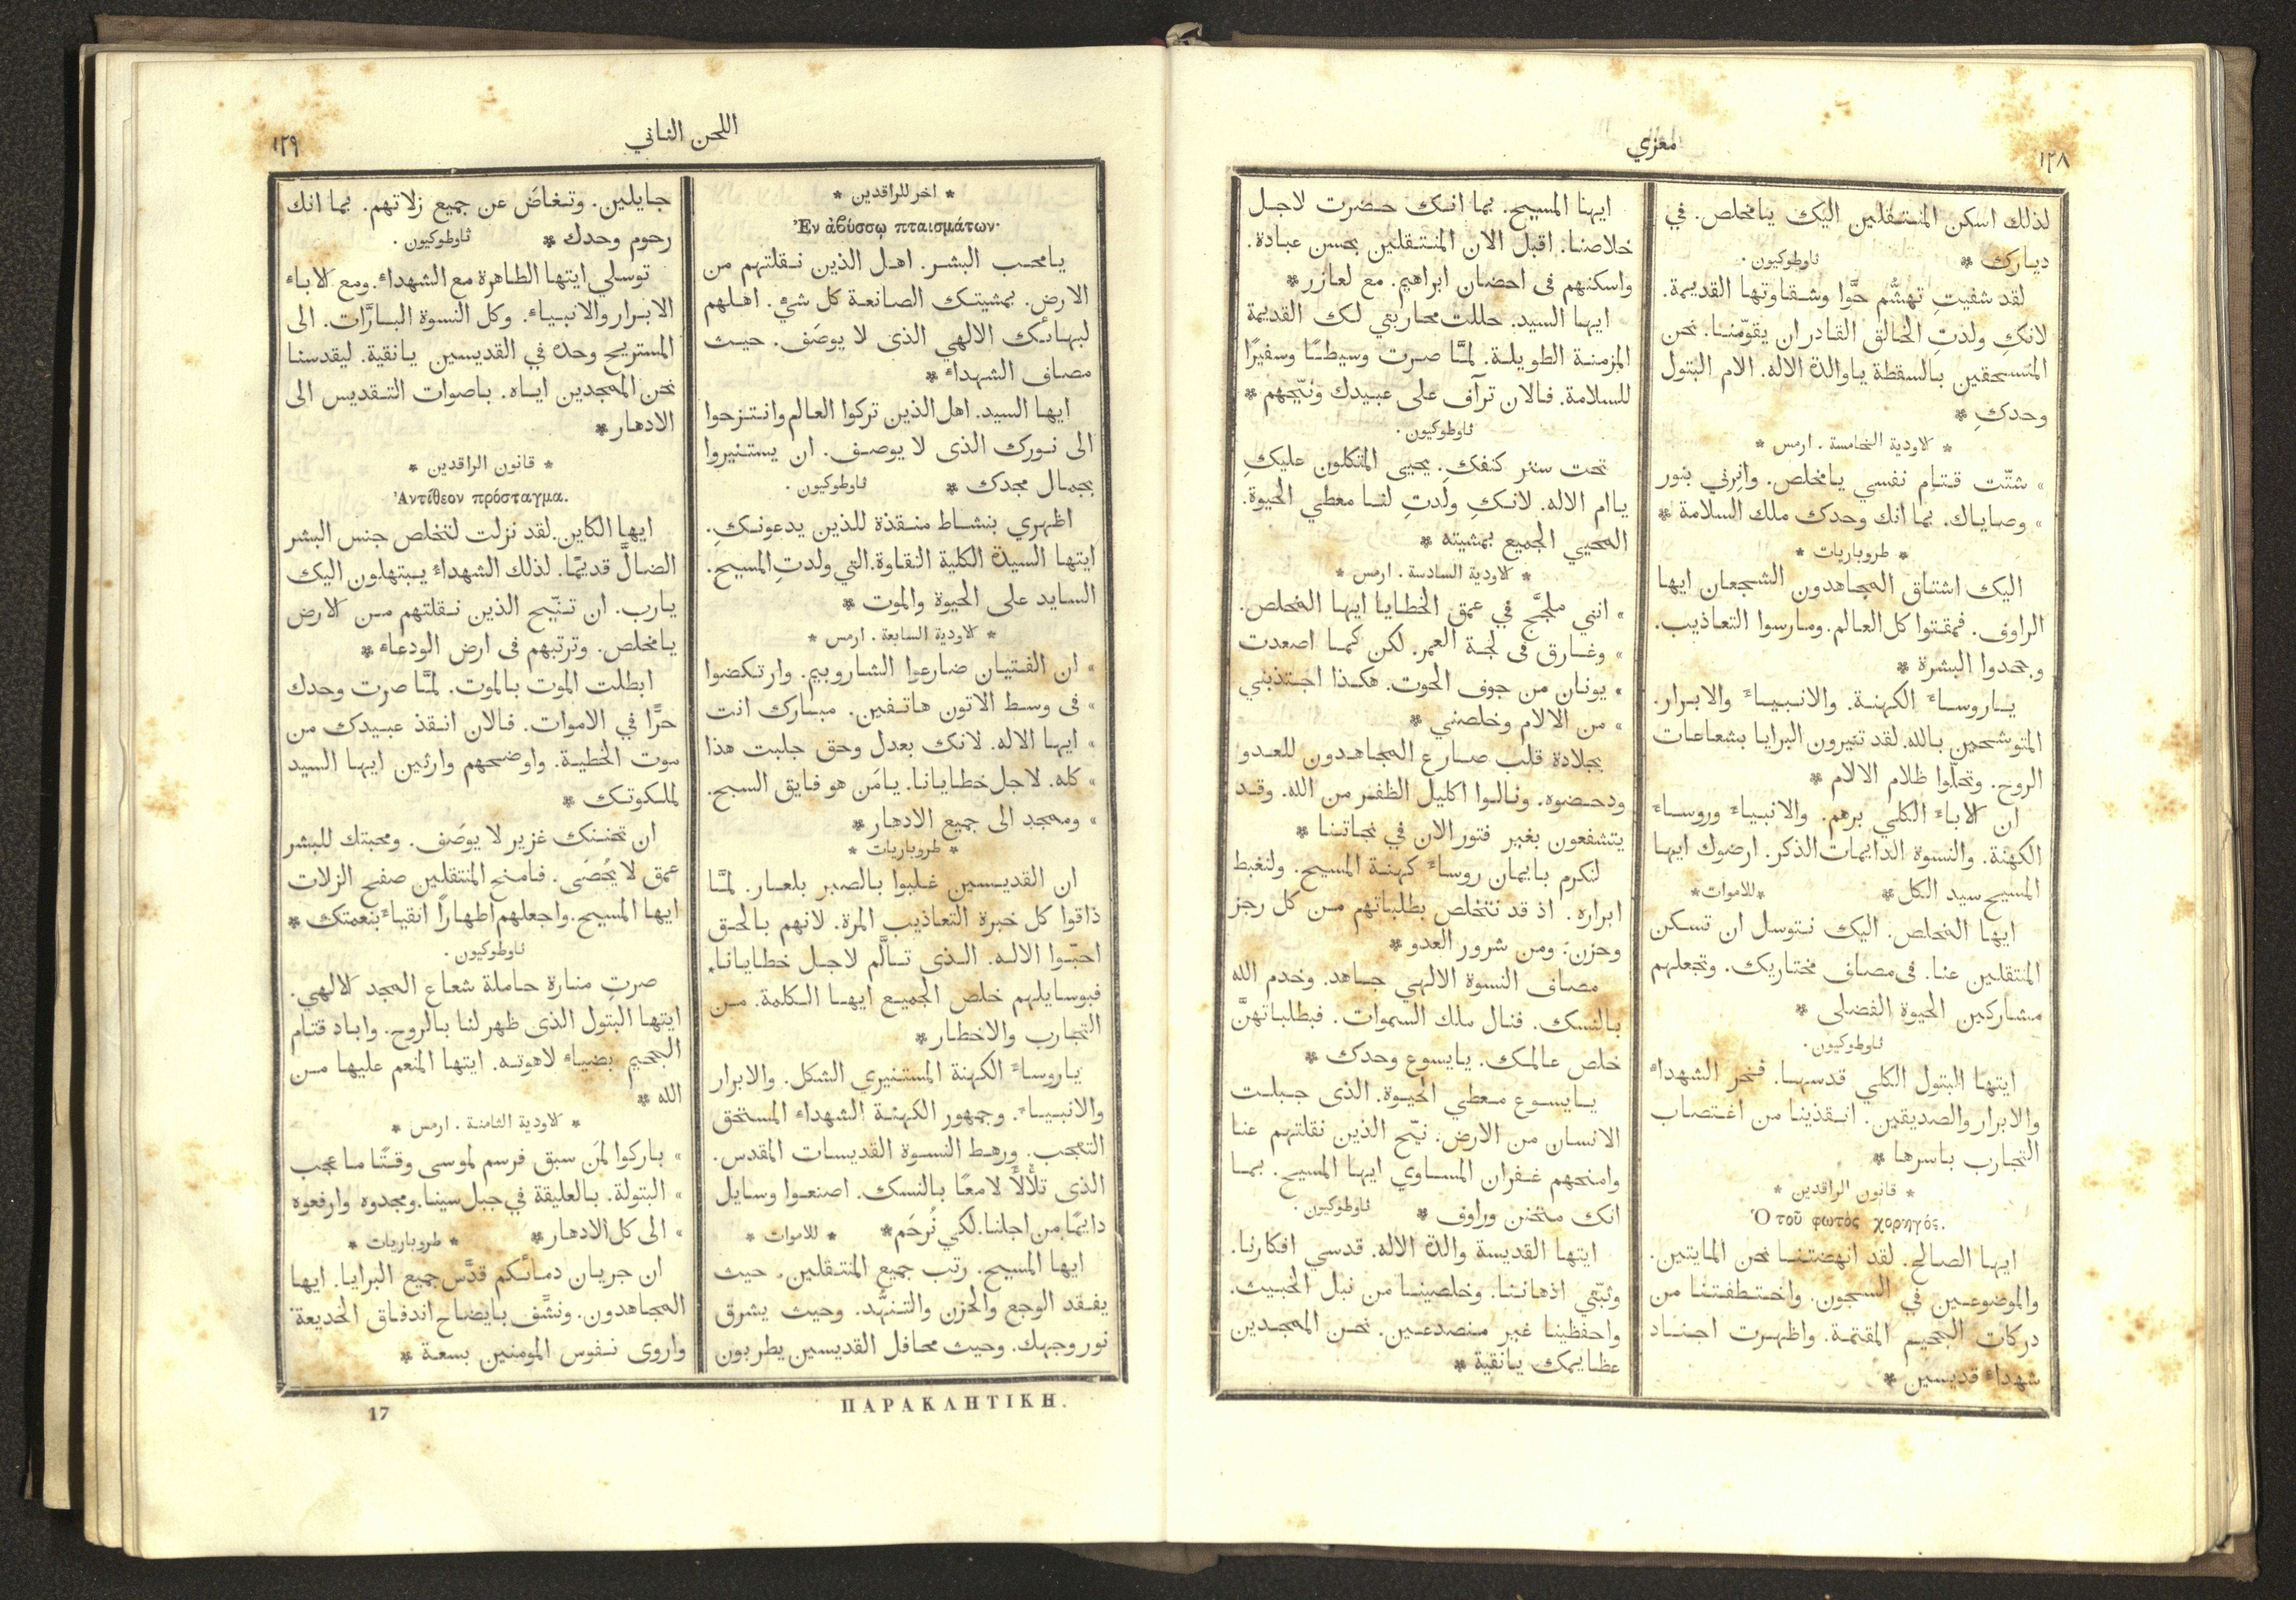 ١٢٨
معزي
لذلك اسكن المنتقلين اليك يامخلص. في
ديارك * ثاوطوكيون.
لقد شفيتِ تهشُّم حوَّا وشقاوتها القديمة.
لانكِ ولدتِ الخالق القادر ان يقوّمنا. نحن
المنسحقين بالسقطة ياوالدة الاله. الام البتول
وحدكِ *
* الاودية الخامسة. ارمس *
» شتّت قتام نفسي يامخلص. وانِرني بنور
» وصاياك. بما انك وحدك ملك السلامة *
* طروباريات *
اليك اشتاق المجاهدون الشجعان ايها
الراوف. فمقتوا كل العالم. ومارسوا التعاذيب.
وجحدوا البشرة *
ياروساء الكهنة. والانبياء والابرار.
المتوشحين بالله. لقد تنيرون البرايا بشعاعات
الروح. وتحلّوا ظلام الالام *
ان الاباء الكلي برهم. والانبياء وروساء
الكهنة. والنسوة الدايمات الذكر. ارضوك ايها
المسيح سيد الكل * *للاموات*
ايها المخلص. اليك نتوسل ان تسكن
المنتقلين عنا. فى مصاف مختاريك. وتجعلهم
مشاركين الحيوة الفضلى *
ثاوطوكيون.
ايتها البتول الكلي قدسها. فخر الشهداء
والابرار والصديقين. انقذينا من اغتصاب
التجارب باسرها *
* قانون الراقدين *
Ὁ τοῦ φωτὸς χορηγός.
ايها الصالح. لقد انهضتنا نحن المايتين.
والموضوعين في السجون. واختطفتنا من
دركات الجحيم المقتمة. واظهرت اجناد
شهداء قديسين *
ايهنا المسيح. بما انك حضرت لاجل
خلاصنا. اقبل الان المنتقلين بحسن عبادة.
واسكنهم فى احضان ابراهيم. مع لعازر *
ايها السيد. حللت محاربتي لك القديمة
المزمنة الطويلة. لمَّا صرت وسيطًا وسفيرًا
للسلامة. فالان ترآف على عبيدك ونيّحهم *
ثاوطوكيون.
تحت ستر كنفكِ. يحيى المتكلون عليكِ
ياام الاله. لانكِ ولدتِ لنا معطي الحيوة.
المحيي الجميع بمشيته *
* الاودية السادسة. ارمس *
» انني ملجَّج في عمق الخطايا ايها المخلص.
» وغارق فى لجة العمر. لكن كما اصعدت
» يونان من جوف الحوت. هكذا اجتذبني
» من الالام وخلصني *
بجلادة قلب صارع المجاهدون للعدو
ودحضوه. ونالوا اكليل الظفر من الله. وقد
يتشفعون بغير فتور الان في نجاتنا *
لنكرم بايمان روساء كهنة المسيح. ولنغبط
ابراره. اذ قد نتخلص بطلباتهم من كل رجز
وحزن. ومن شرور العدو *
مصاف النسوة الالهي جاهد. وخدم الله
بالنسك. فنال ملك السموات. فبطلباتهنَّ
خلص عالمك. يايسوع وحدك *
يايسوع معطي الحيوة. الذى جبلت
الانسان من الارض. نيّح الذين نقلتهم عنا
وامنحهم غفران المساوي ايها المسيح. بما
انك متحنن وراوف * ثاوطوكيون.
ايتها القديسة والدة الاله. قدسي افكارنا.
وثبّتي اذهاننا. وخلصينا من نبل الخبيث.
واحفظينا غير منصدعين. نحن الممجدين
عظايمك يانقية *
اللحن الثاني
١٢٩
* اخر للراقدين *
Ἐν ἀβύσσῳ πταισμάτων.
يامحب البشر. اهل الذين نقلتهم من
الارض. بمشيتك الصانعة كل شي. اهلهم
لبهائك الالهي الذى لا يوصَف. حيث
مصاف الشهداء *
ايها السيد. اهل الذين تركوا العالم وانتزحوا
الى نورك الذى لا يوصف. ان يستنيروا
بجمال مجدك * ثاوطوكيون.
اظهري بنشاط منقذة للذين يدعونكِ.
ايتها السيدة الكلية النقاوة. التي ولدتِ المسيح.
السايد على الحيوة والموت *
* الاودية السابعة. ارمس *
» ان الفتيان ضارعوا الشاروبيم. وارتكضوا
» فى وسط الاتون هاتفين. مبارك انت
» ايها الاله. لانك بعدل وحق جلبت هذا
» كله. لاجل خطايانا. يامَن هو فايق السبح.
» وممجد الى جميع الادهار *
* طروباريات *
ان القديسين غلبوا بالصبر بلعار. لمَّا
ذاقوا كل خبرة التعاذيب المرة. لانهم بالحق
احبّوا الاله. الذى تألَّم لاجل خطايانا.
فبوسايلهم خلص الجميع ايها الكلمة. من
التجارب والاخطار *
ياروساء الكهنة المستنيري الشكل. والابرار
والانبياء. وجمهور الكهنة الشهداء المستحق
التعجب. ورهط النسوة القديسات المقدس.
الذى تلألأَ لامعًا بالنسك. اصنعوا وسايل
دايمًا من اجلنا. لكي نُرحَم * * للاموات *
ايها المسيح. رتب جميع المنتقلين. حيث
يفقد الوجع والحزن والتنهُّد. وحيث يشرق
نور وجهك. وحيث محافل القديسين يطربون
جايلين. وتغاضَ عن جميع زلاتهم. بما انك
رحوم وحدك * ثاوطوكيون.
توسلي ايتها الطاهرة مع الشهداء. ومع الاباء
الابرار والانبياء. وكل النسوة البارَّات. الى
المستريح وحده في القديسين يانقية. ليقدسنا
نحن الممجدين اياه. باصوات التقديس الى
الادهار *
* قانون الراقدين *
Ἀντίθεον πρόσταγμα.
ايها الكاين. لقد نزلت لتخلص جنس البشر
الضالَّ قديمًا. لذلك الشهداء يبتهلون اليك
يارب. ان تنيّح الذين نقلتهم من الارض
يامخلص. وترتبهم فى ارض الودعاء *
ابطلت الموت بالموت. لمَّا صرت وحدك
حرًّا في الاموات. فالان انقذ عبيدك من
موت الخطية. واوضحهم وارثين ايها السيد
لملكوتك *
ان تحننك غزير لا يوصَف. ومحبتك للبشر
عمق لا يُحصَى. فامنح المنتقلين صفح الزلات
ايها المسيح. واجعلهم اطهارًا انقياء بنعمتك *
ثاوطوكيون.
صرتِ منارة حاملة شعاع المجد الالهي.
ايتها البتول الذى ظهر لنا بالروح. واباد قتام
الجحيم بضياء لاهوته. ايتها المنعم عليها من
الله *
* الاودية الثامنة. ارمس *
» باركوا لمَن سبق فرسم لموسى وقتًا ما عجب
» البتولة. بالعليقة في جبل سينا. ومجدوه وارفعوه
» الى كل الادهار * * طروباريات *
ان جريان دمائكم قدَّس جميع البرايا. ايها
المجاهدون. ونشَّف بايضاح اندفاق الخديعة
واروى نفوس المومنين بسعة *
ΠΑΡΑΚΛΗΤΙΚΗ.
17